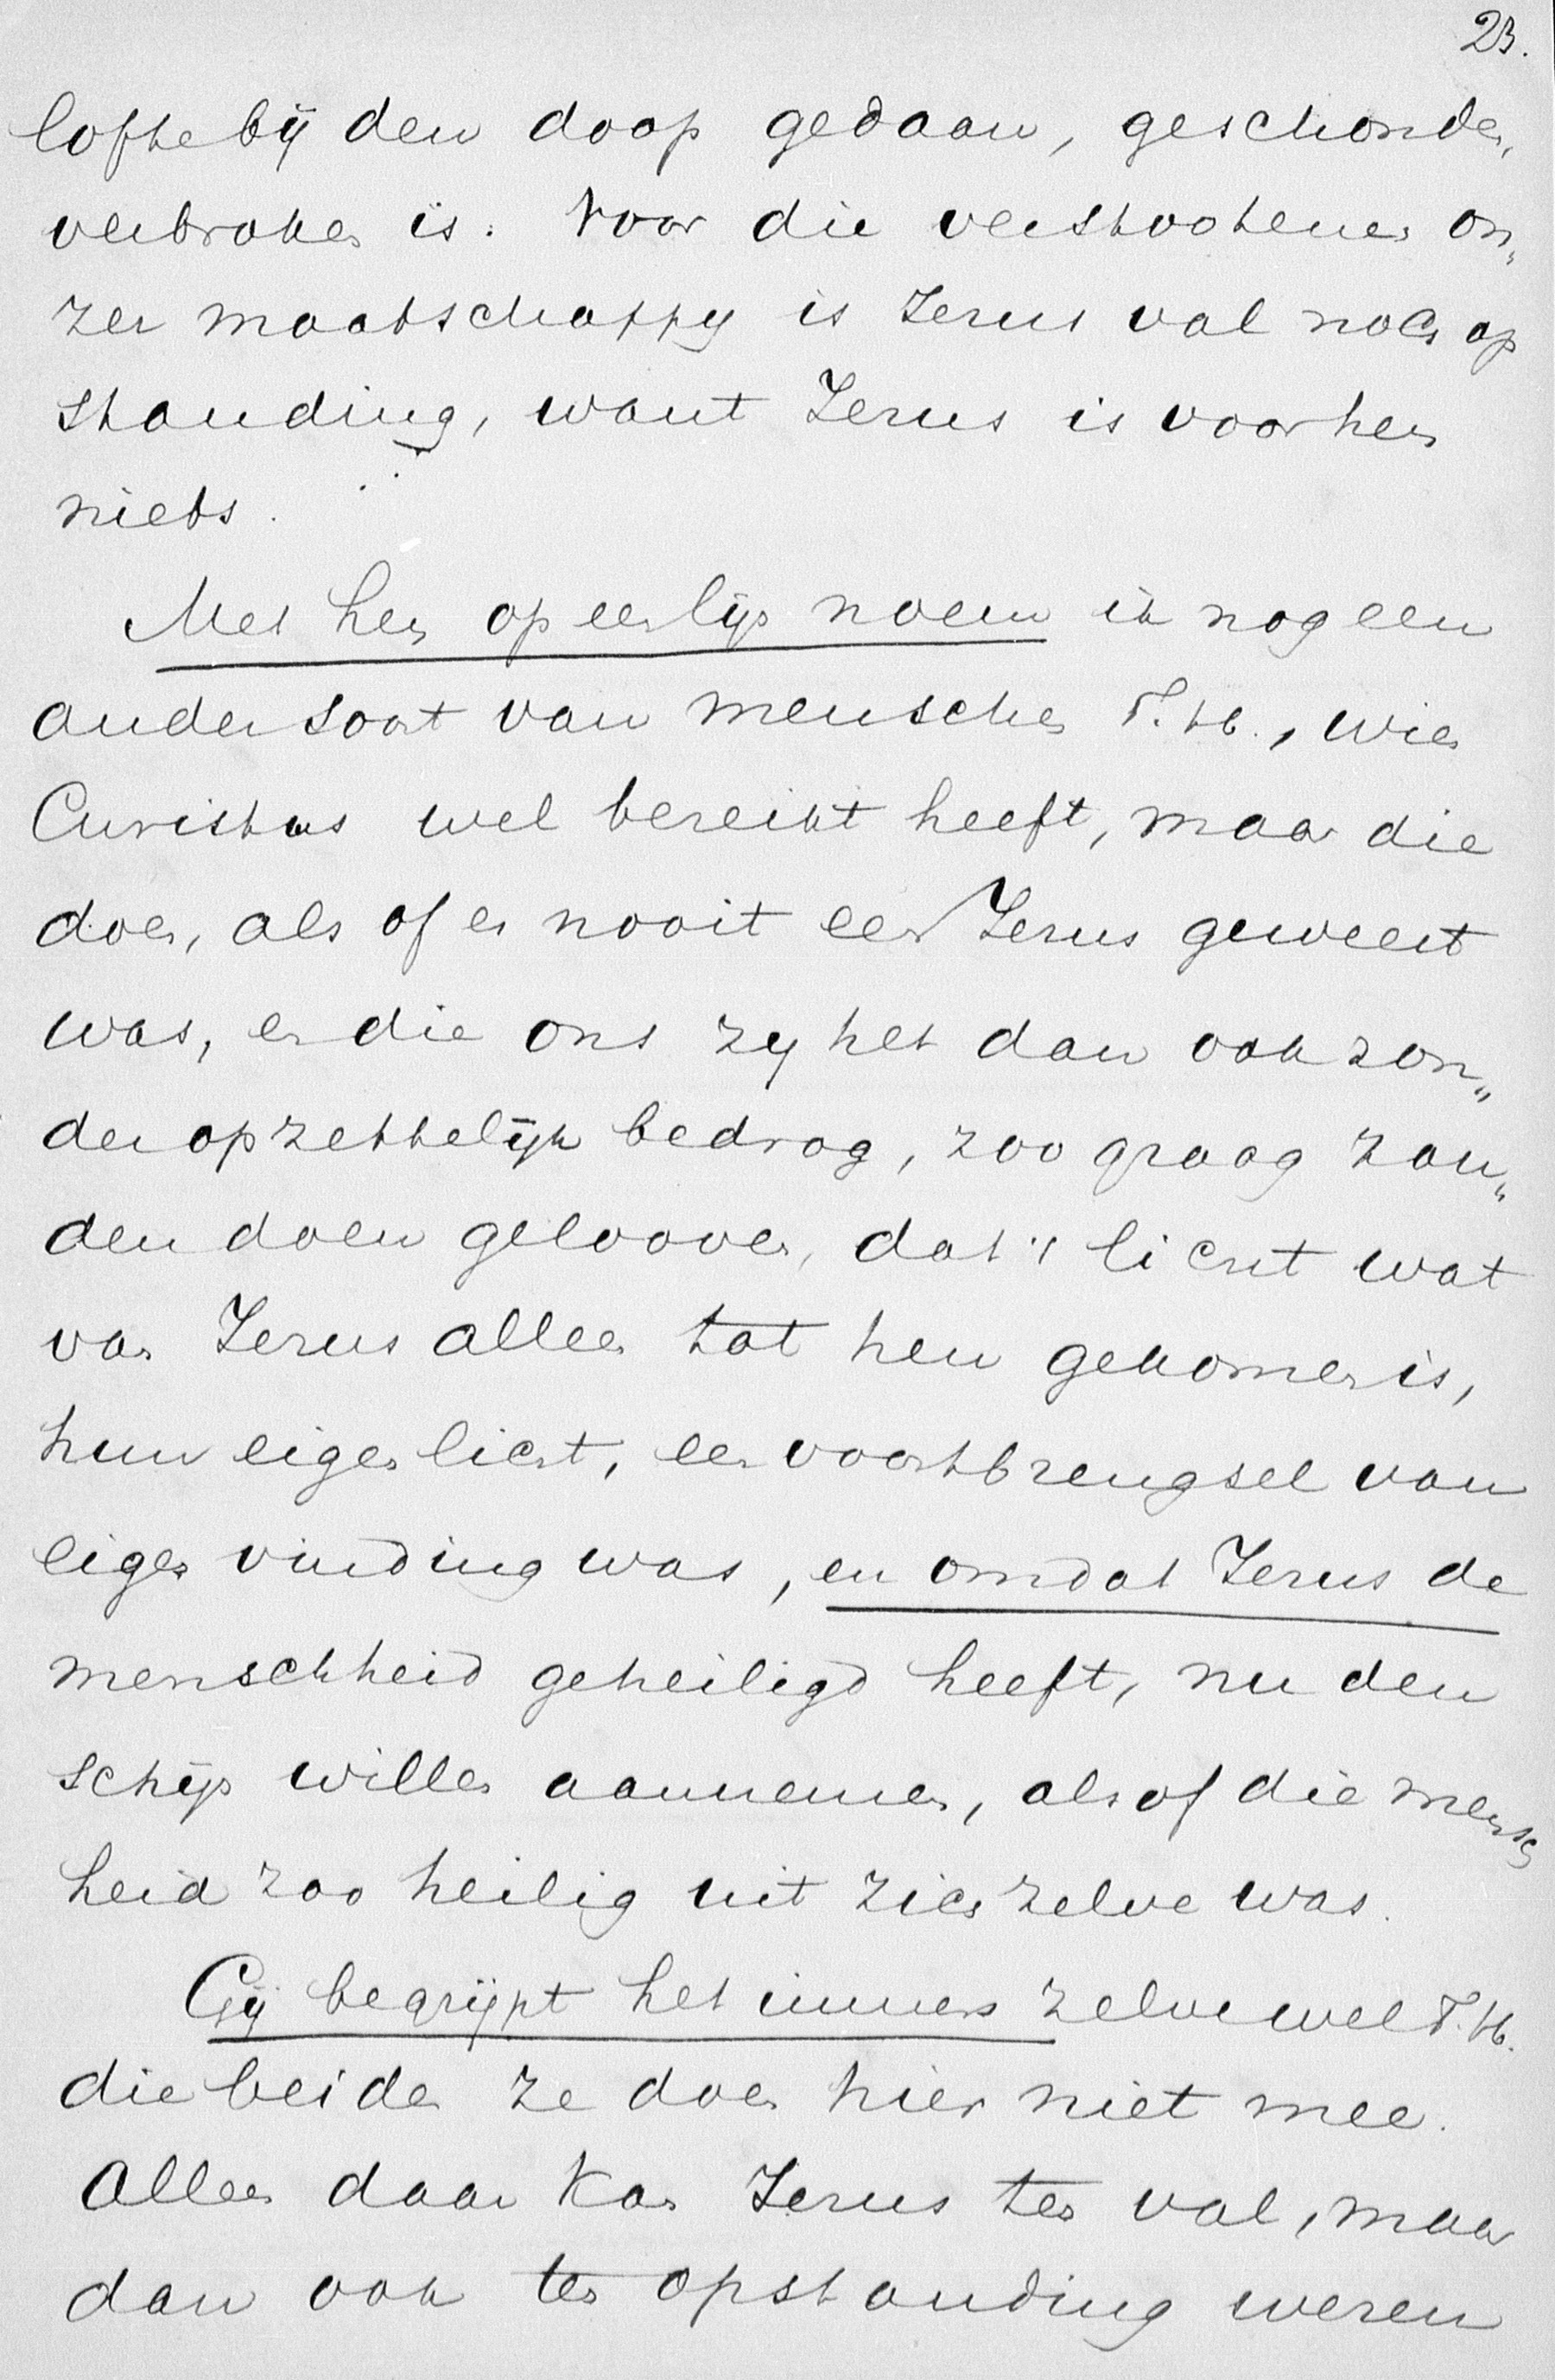 23.
lofte bij den doop gedaan, geschonden,
verbroken is. Voor die verstootenen on„
zer maatschappy is Jezus val noch op
standing, want Jezus is voor hen
niets.
Met hen op een lijn noem ik nog een
ander soort van menschen T. H., wien
Christus wel bereikt heeft, maar die
doen, als of er nooit een Jezus geweest
was, en die ons zy het dan ook zon„
der opzettelijk bedrog, zoo graag zou„
den doen gelooven, dat 't licht wat
van Jezus alleen tot hen gekomen is,
hun eigen licht, een voortbrengsel van
eigen vinding was, en omdat Jezus de
menschheid geheiligd heeft, nu den
schijn willen aannemen, alsof die mensch
heid zoo heilig uit zich zelve was.
Gij begrijpt het immers zelve wel T. H.
die beiden ze doen hier niet mee.
Alleen daar kan Jezus ten val, maar
dan ook ten opstanding wezen